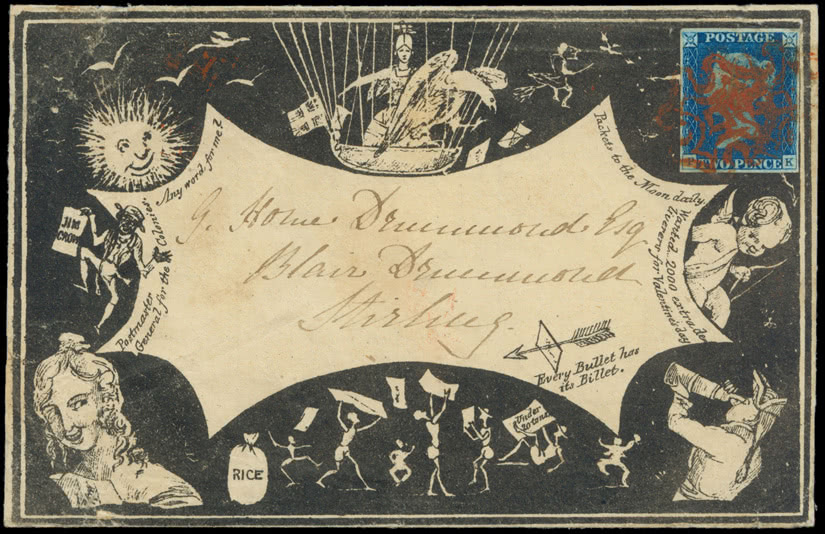 POSTAGE
P TWO PENCE K
Any word for me?
Packets to the Moon daily.
Wanted, 2000 extra de
liverers for Valentine's day
JIM
CROW
Postmaster
General for the Colonies.
G. Home Drummond Esq
Blair Drummond
Stirling.
Every Bullet has
its Billet.
Under
20 tons
RICE